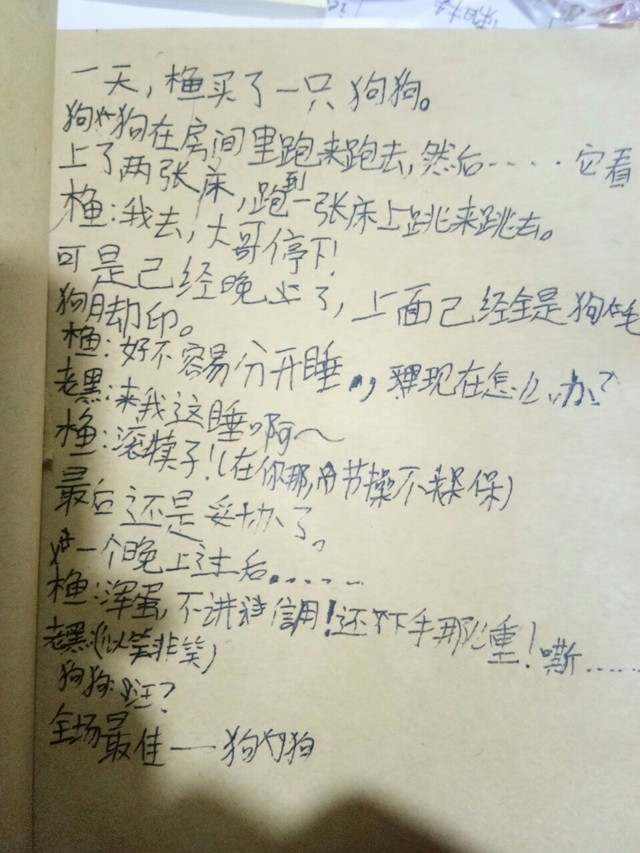 一天，橹买了一只狗狗。
狗狗在房间里跑来跑去，然后....它看
上了两张床，跑到一张床上跳来跳去。
橹：我去，大哥停下！
可是已经晚了，上面已经全是狗毛
狗脚印。
橹：好不容易分开睡，现在怎么办？
老黑：来我这睡啊～
橹：滚犊子！（在你那，节操不保）
最后还是妥协了。
一个晚上过后......
橹：浑蛋，不讲信用！还下手那么重！嘶......
老黑（似笑非笑）
狗狗：汪？
全场最佳——狗狗